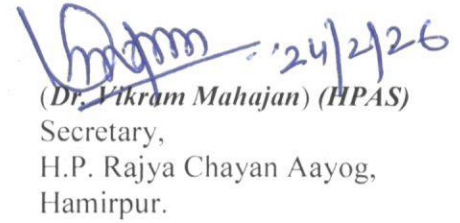 24/2/26
(Dr. Vikram Mahajan) (HPAS)
Secretary,
H.P. Rajya Chayan Aayog,
Hamirpur.